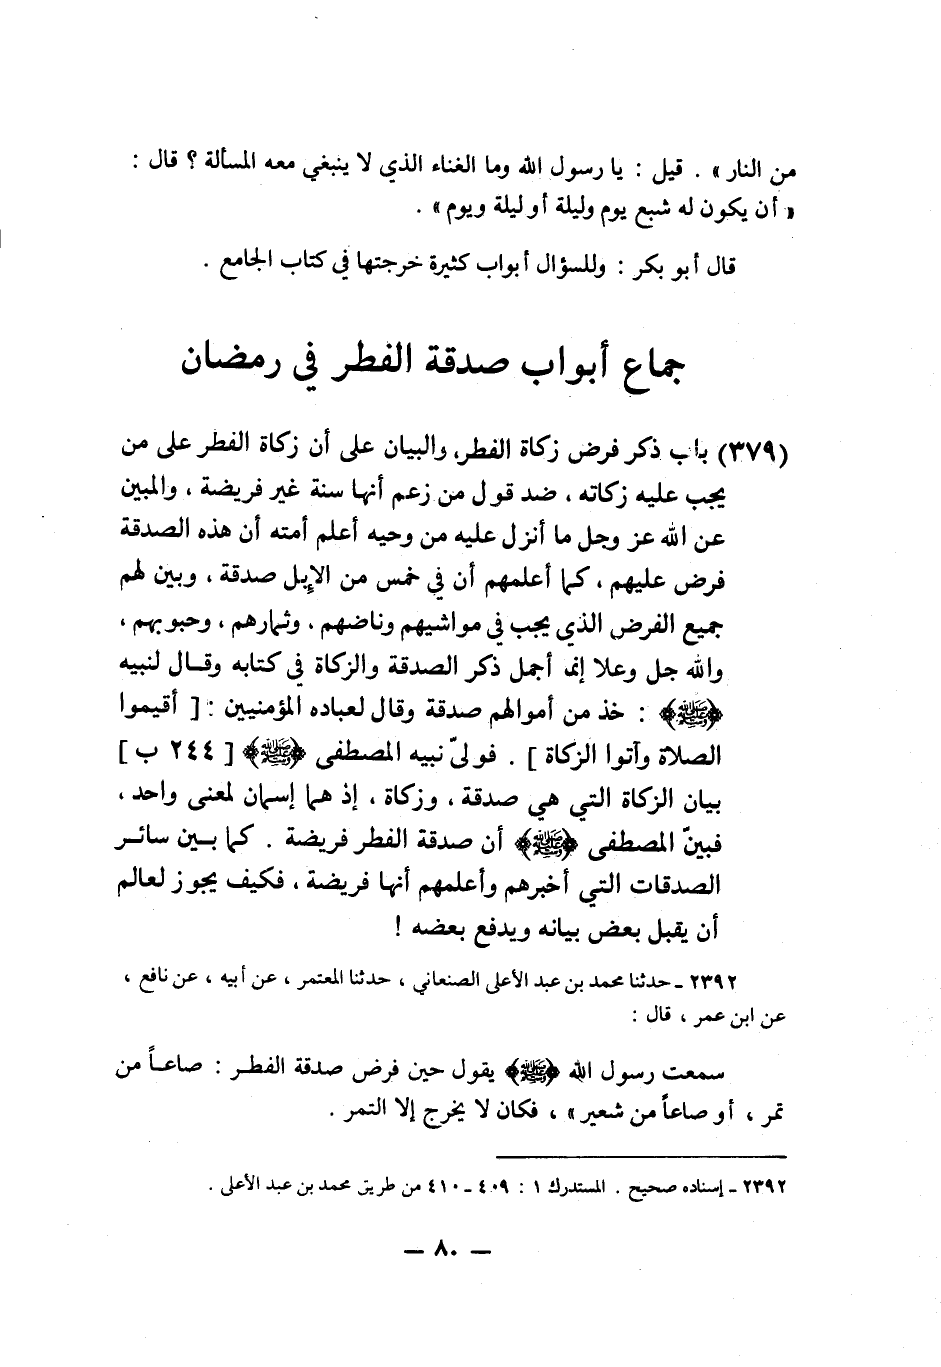 من النار» . قيل : يا رسول الله وما الغناء الذي لا ينبغي معه المسألة ؟ قال :
« أن يكون له شبع يوم وليلة أو ليلة ويوم» .
قال أبو بكر : وللسؤال أبواب كثيرة خرجتها في كتاب الجامع .
جماع أبواب صدقة الفطر في رمضان
(٣٧٩) باب ذكر فرض زكاة الفطر، والبيان على أن زكاة الفطر على من
يجب عليه زكاته ، ضد قول من زعم أنها سنة غير فريضة ، والمبين
عن الله عز وجل ما أنزل عليه من وحيه أعلم أمته أن هذه الصدقة
فرض عليهم ، كما أعلمهم أن في خمس من الإبل صدقة ، وبين لهم
جميع الفرض الذي يجب في مواشيهم وناضهم ، وثمارهم ، وحبوبهم ،
والله جل وعلا إنما أجمل ذكر الصدقة والزكاة في كتابه وقال لنبيه
﴿ﷺ﴾ : خذ من أموالهم صدقة وقال لعباده المؤمنيين : [ أقيموا
الصلاة وآتوا الزكاة ] . فولّى نبيه المصطفى ﴿ﷺ﴾ [ ٢٤٤ ب ]
بيان الزكاة التي هي صدقة ، وزكاة ، إذ هما إسمان لمعنى واحد ،
فبينّ المصطفى ﴿ﷺ﴾ أن صدقة الفطر فريضة . كما بين سائر
الصدقات التي أخبرهم وأعلمهم أنها فريضة ، فكيف يجوز لعالم
أن يقبل بعض بيانه ويدفع بعضه !
٢٣٩٢ ـ حدثنا محمد بن عبد الأعلى الصنعاني ، حدثنا المعتمر ، عن أبيه ، عن نافع ،
عن ابن عمر ، قال :
سمعت رسول الله ﴿ﷺ﴾ يقول حين فرض صدقة الفطر : صاعاً من
تمر ، أو صاعاً من شعير » ، فكان لا يخرج إلا التمر .
٢٣٩٢ ـ إسناده صحيح . المستدرك ١ : ٤٠٩ ـ ٤١٠ من طريق محمد بن عبد الأعلى .
— ٨٠ —